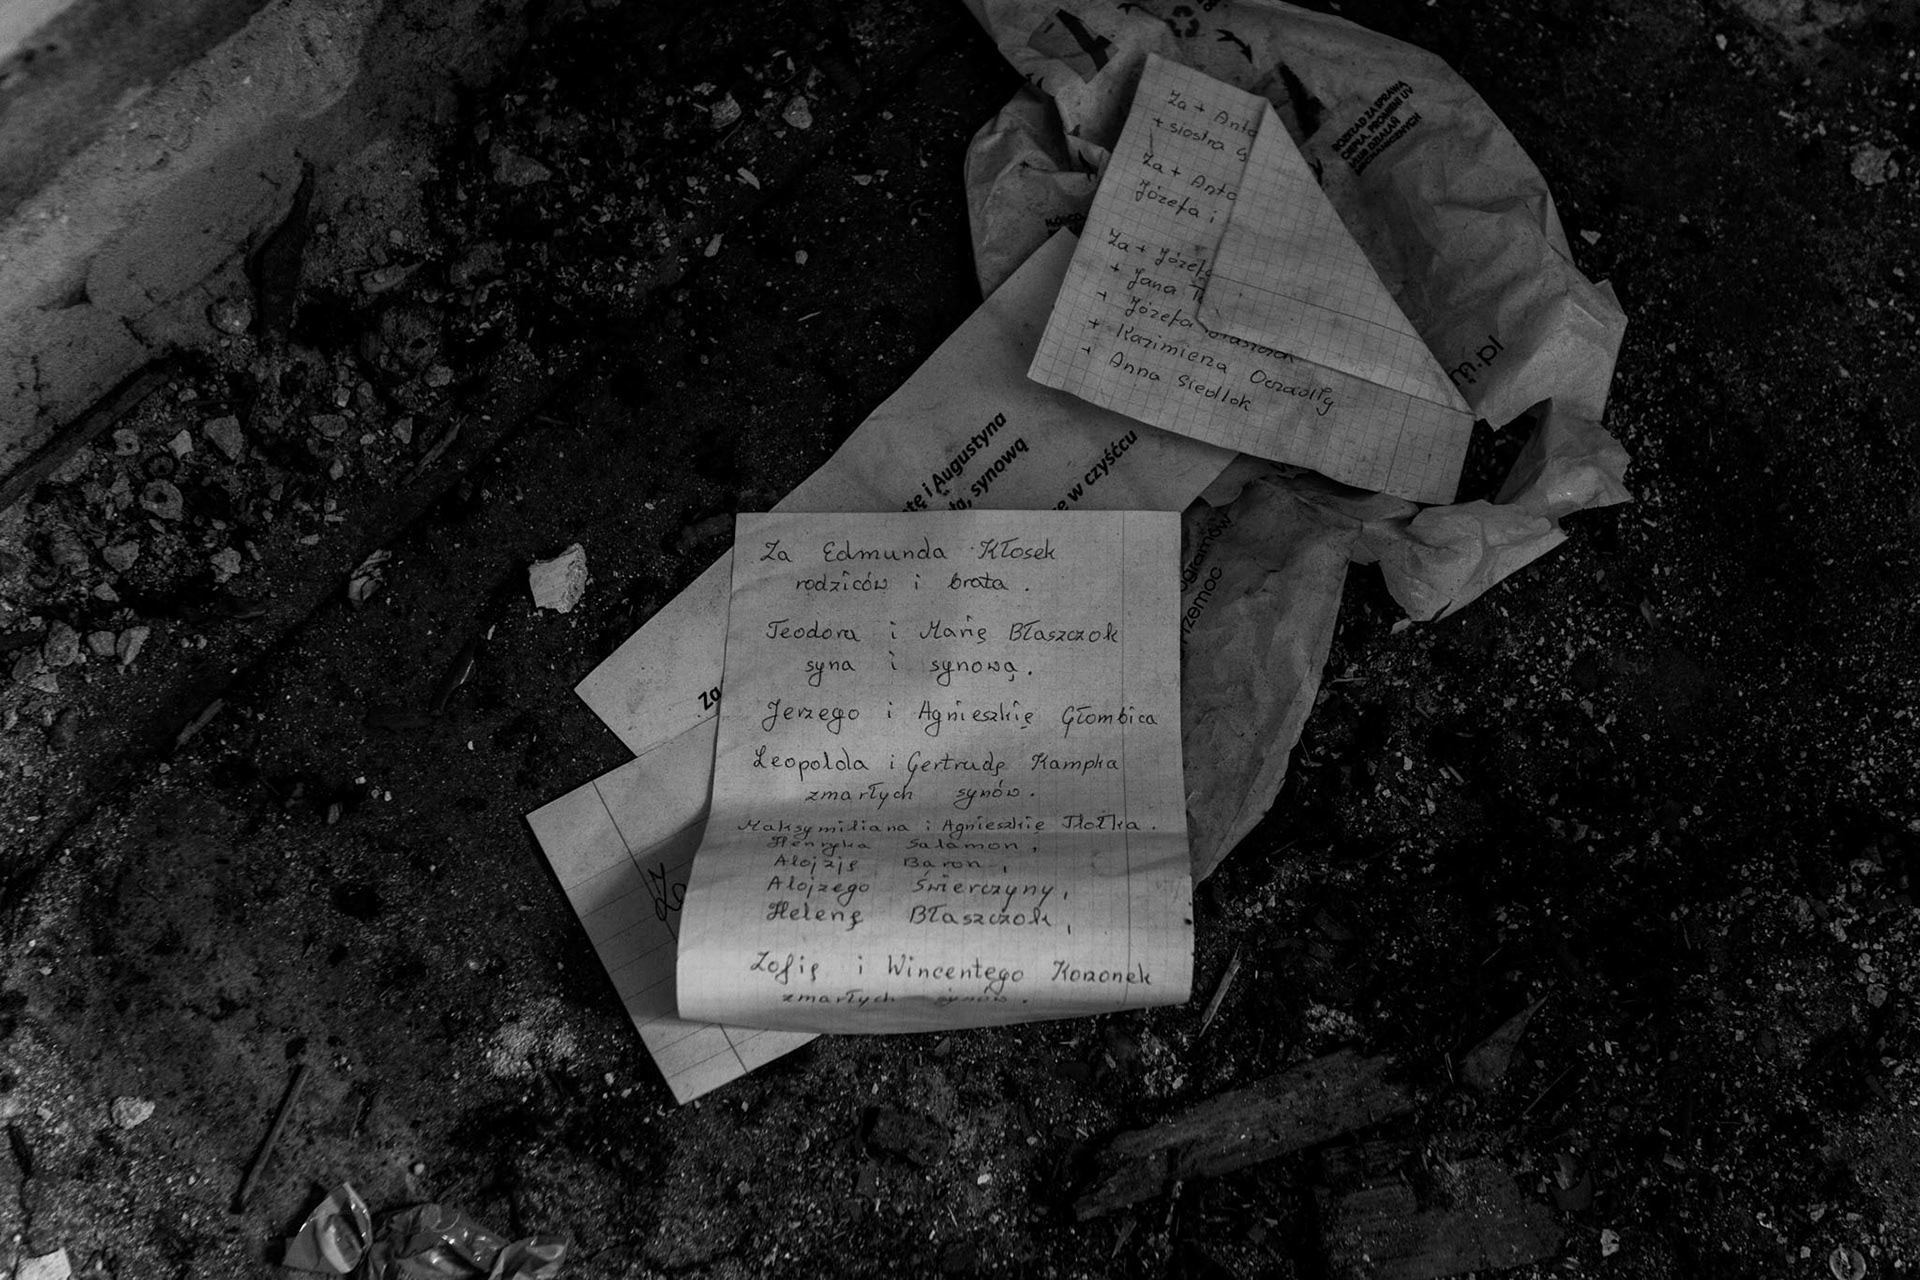 Za + Anto
+ siostra
Za + Anto
Józefa i
Za + Józefa
+ Jana
+ Józefa
+ Kazimierza
+ Anna Siedlok
ROZKŁAD ZA SPRAWĄ
CIEPŁA, PROMIENI UV
m.pl
tę i Augustyna
ła, synową
e w czyśćcu
Za
Za Edmunda Kłosek
rodziców i brata.
Teodora i Marię Błaszczok
syna i synową.
Jerzego i Agnieszkię Głombica
Leopolda i Gertrudę Kampka
zmarłych synów.
Maksymiliana i Agnieszkię Tlołka.
Henryka Salamon,
Alojzję Baron,
Alojzego Świerczyny,
Helenę Błaszczok,
Zofię i Wincentego Korzonek
zmarłych synów.
Za